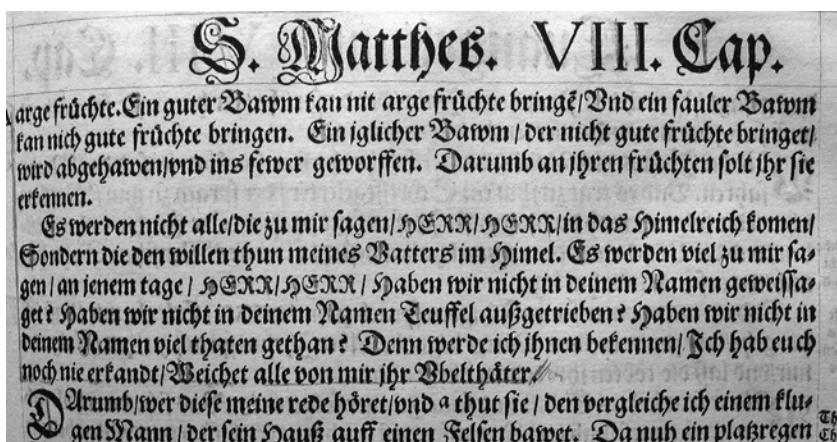 S. Matthes. VIII. Cap.
arge früchte. Ein guter Bawm kan nit arge früchte bringẽ/ Vnd ein fauler Bawm
kan nich gute früchte bringen. Ein iglicher Bawm / der nicht gute früchte bringet/
wird abgehawen/vnd ins fewer geworffen. Darumb an jhren früchten solt jhr sie
erkennen.
Es werden nicht alle/die zu mir sagen/HERR/HERR/in das Himelreich komen/
Sondern die den willen thun meines Vatters im Himel. Es werden viel zu mir sa-
gen/an jenem tage / HERR/HERR / Haben wir nicht in deinem Namen geweissa-
get? Haben wir nicht in deinem Namen Teuffel außgetrieben? Haben wir nicht in
deinem Namen viel thaten gethan? Denn werde ich jhnen bekennen/ Jch hab euch
noch nie erkandt/Weichet alle von mir jhr Vbelthäter/
DArumb/wer diese meine rede höret/vnd a thut sie / den vergleiche ich einem klu-
gen Mann / der sein Hauß auff einen Felsen bawet. Da nuh ein platzregen